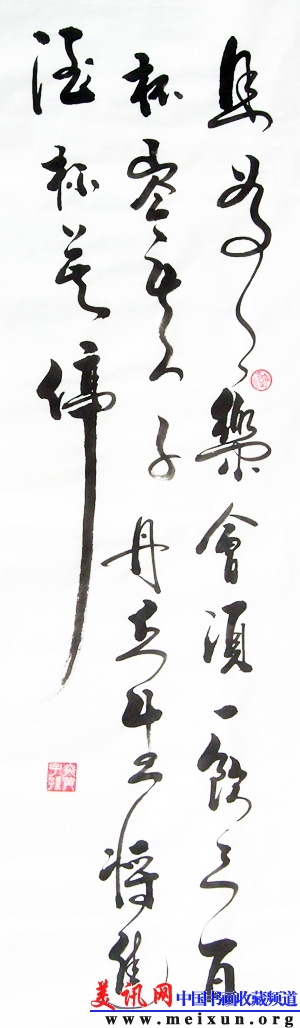 且為樂會須一飲三百
杯岑夫子丹丘生將進
酒杯莫停
美讯网 中国书画收藏频道
www.meixun.org